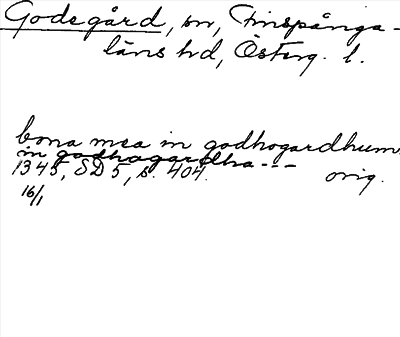 Godegård, sn, Finspånga-
läns hd, Österg. l.
bona mea in godhogardhum
in godhagardha ---
1345, SD 5, s. 404. orig.
16/1